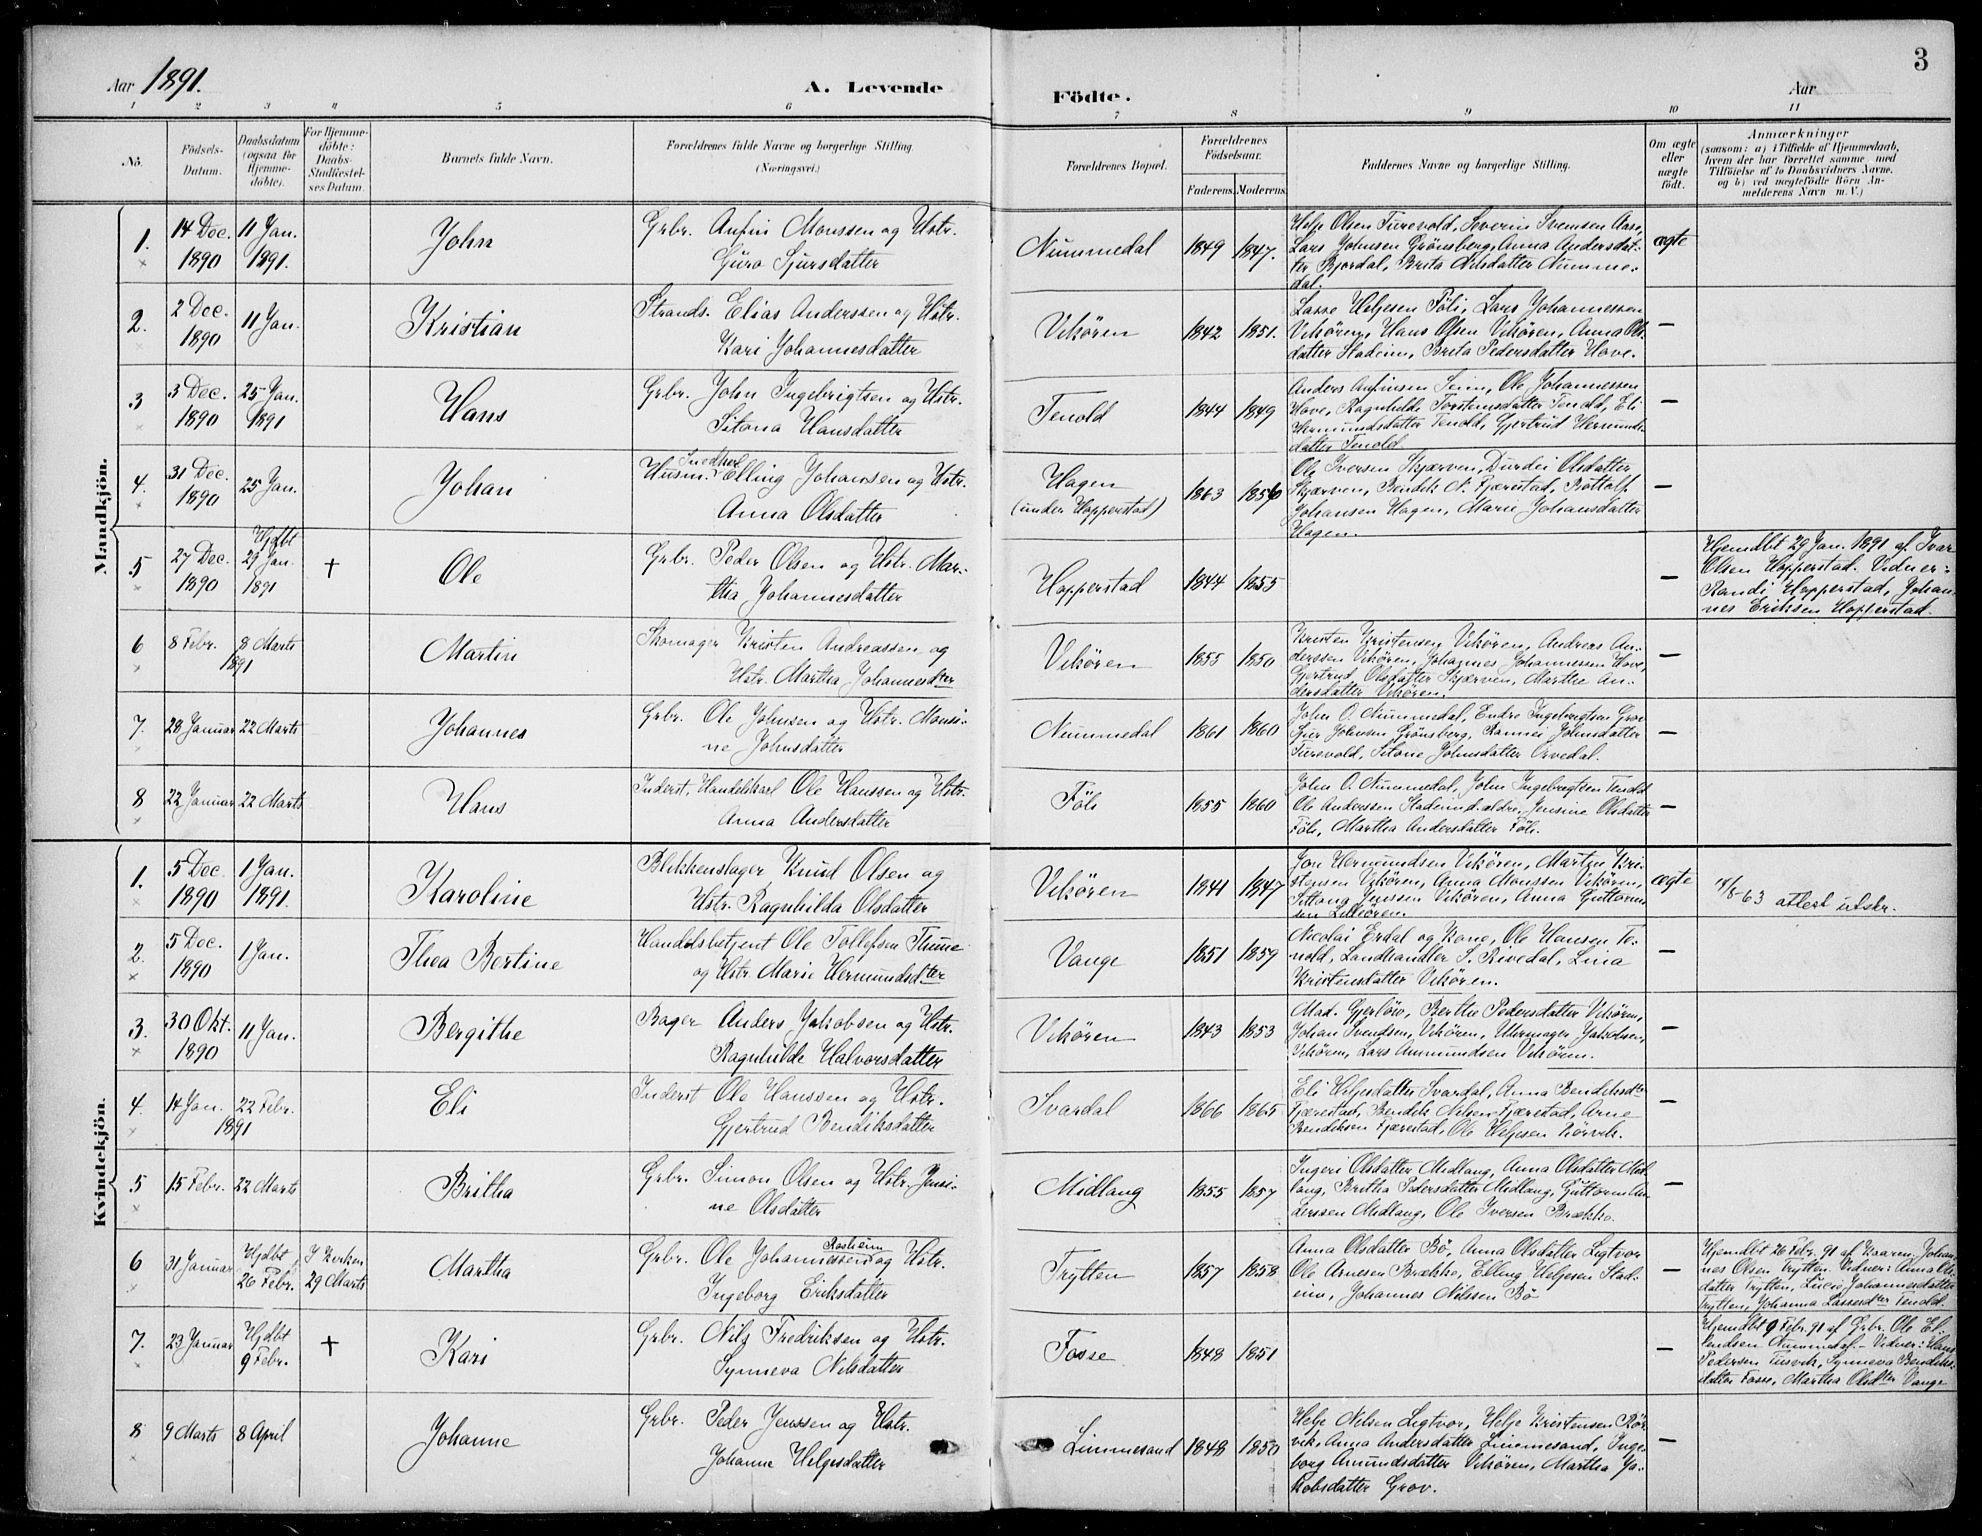 3
Aar 1891.
A. Levende
Födte.
Aar
1 2 3 4 5 6 7 8 9 10 11
No.
Födsels-Datum.
Daabsdatum (ogsaa for Hjemme-döbte).
For Hjemme-döbte: Daabs-Stadfæstel-ses Datum.
Barnets fulde Navn.
Forældrenes fulde Navne og borgerlige Stilling (Næringsvei.)
Forældrenes Bopæl.
Forældrenes Födselsaar.
Faderens. Moderens.
Faddernes Navne og borgerlige Stilling.
Om ægte eller uægte födt.
Anmærkninger
(saasom: a) i Tilfælde af Hjemmedaab,
hvem der har forrettet samme, med
Tilföielse af to Daabsvidners Navne,
og b) ved uægtefödte Börn An-
melderens Navn m. V.)
Mandkjön.
1. 14 Dec. 1890 11 Jan. 1891. John
Grbr. Anfin Monssen og Hstr.
Guro Sjursdatter
Nummedal 1849 1847.
Helje Olsen Turvold, Severin Svensen Aase,
Lars Johnsen Grönsberg, Anna Andersdat-
ter Bjordal, Brita Nilsdatter Numme-
dal.
ægte
2. 2 Dec. 1890 11 Jan. Kristian
Strands. Elias Anderssen og Hstr.
Kari Johannesdatter
Vikören 1842 1851.
Lasse Heljesen Föli, Lars Johannessen
Vikören, Hans Olsen Vikören, Anna Ols-
datter Stadeim, Brita Pedersdatter Hove.
—
3 3 Dec. 1890 25 Jan. 1891 Hans
Grbr. John Ingebrigtsen og Hstr.
Sitona Hansdatter
Tenold 1844 1849
Anders Anfinsen Seim, Ole Johannessen
Hove, Ragnhilde Torsteinsdatter Tenold, Eli
Hermundsdatter Tenold, Gjertrud Hermunds-
datter Tenold
—
4. 31 Dec. 1890 25 Jan. Johan
Husm. Snedker Elling Johanssen og Hstr.
Anna Olsdatter
Hagen
(under Hopperstad)
1863 1856
Ole Iversen Skjærven, Durdei Olsdatter
Skjærven, Bendik N. Fjærestad, Botolf
Johansen Hagen, Marie Johansdatter
Hagen.
—
5 27 Dec. 1890 Hjdbt 29 Jan. 1891 + Ole
Grbr. Peder Olsen og Hstr. Mar-
tha Johannesdatter
Hopperstad 1844 1855
—
Hjemdbt 29 Jan. 1891 af Ivar
Olsen Hopperstad. Vidner:
Randi Hopperstad, Johan-
nes Eriksen Hopperstad.
6 8 Febr. 8 Marts 1891 Martin
Skomager Kristen Andreassen og
Hstr. Martha Johannesdter
Vikören 1855 1850
Kristen Kristensen Vikören, Andreas An-
derssen Vikören, Johannes Johannessen Hove,
Gjertrud Olsdatter Skjærven, Marthe An-
dersdatter Vikören.
—
7. 28 Januar 22 Marts Johannes
Grbr. Ole Johnsen og Hstr. Monsi-
ne Johnsdatter
Nummedal 1861 1860
John O. Nummedal, Endre Ingebrigtsen Grov
Sjur Johnsen Grönsberg, Ramei Johnsdatter
Turvold, Sitone Johnsdatter Orvedal.
—
8 22 Januar 22 Marts Hans
Inderst, Handelskarl Ole Hanssen og Hstr.
Anna Andersdatter
Föli 1855 1860
John O. Nummedal, John Ingebrigtsen Tenold
Ole Anderssen Stadeim d. ældre, Jensine Olsdatter
Föli, Martha Andersdatter Föli.
—
Kvindekjön.
1. 5 Dec. 1890 1 Jan. 1891. Karoline
Blikkenslager Knud Olsen og
Hstr. Ragnhilda Olsdatter
Vikören 1841 1847
Jon Hermundsen Vikören, Martin Kri-
stensen Vikören, Anna Monssen Vikören,
Sittona Jenssen Vikören, Anna Guttorm-
sen Vikören.
ægte
/8-63 attest utskr.
2. 5 Dec. 1890 1 Jan. Thea Bertine
Handelsbetjent Ole Tollefsen Thune
og Hstr. Marie Hermundsdter
Vange 1851 1859
Nicolai Erdal og Kone, Ole Hansen Te-
nold, Landhandler S. Rivedal, Lina
Kristensdatter Vikören.
—
3. 30 Okt. 1890 11 Jan. Bergithe
Bager Anders Jakobsen og Hstr.
Ragnhilde Halvorsdatter
Vikören 1843 1853
Mad. Gjerlöw, Berthe Pedersdatter Vikören,
Johan Svendsen, Vikören, Uhrmager Jakobsen,
Vikören, Lars Ammundsen Vikören.
—
4. 14 Jan. 22 Febr. 1891 Eli
Inderst Ole Hanssen og Hstr.
Gjertrud Bendiksdatter
Svardal 1866 1865
Eli Heljesdatter Svardal, Anna Bendiksdtr
Fjærestad, Bendik Nilsen Fjærestad, Arne
Bendiksen Fjærestad, Ole Heljesen Rörvik.
—
5 15 Febr. 22 Marts Britha
Grbr. Simon Olsen og Hstr. Jensi-
ne Olsdatter
Midlang 1855 1857
Ingeri Olsdatter Midlang, Anna Olsdatter Mid-
lang, Britha Pedersdatter Midlang, Guttorm An-
derssen Midlang, Ole Iversen Brække.
—
6 31 Januar Hjdbt 26 Febr. I Kirken 29 Marts Martha
Grbr. Ole Johannessen Raaheim og Hstr.
Ingeborg Eriksdatter
Trytten 1857 1858
Anna Olsdatter Bö, Anna Olsdatter Ligtvor
Ole Arnesen Brække, Elling Heljesen Stad-
eim, Johannes Nilssen Bö
—
Hjemdbt 26 Febr. 91 af Johan-
nes Olsen Trytten. Vidner: Anna Ols-
datter Trytten, Lucie Johannesdatter
Trytten, Johanna Lassesdter Tenold.
7. 23 Januar Hjdbt 9 Febr. + Kari
Grbr. Nils Fredriksen og Hstr.
Synneva Nilsdatter
Fosse 1848 1851
—
Hjemdbt 9 Febr. 91 af Grbr. Ole El-
lendsen Nummedal. Vidner: Hans
Pedersen Tusvik, Synneva Bendiks-
datter Fosse, Martha Olsdter Vange
8 9 Marts 8 April Johanne
Grbr. Peder Jenssen og Hstr.
Johanne Helgesdatter
Limmesand 1848 1850
Helje Nilsen Ligtvor, Helje Kristensen Rör-
vik, Anna Andersdatter Limmesand, Inge-
borg Amundsdatter Vikören, Martha Ja-
kobsdatter Grov.
—